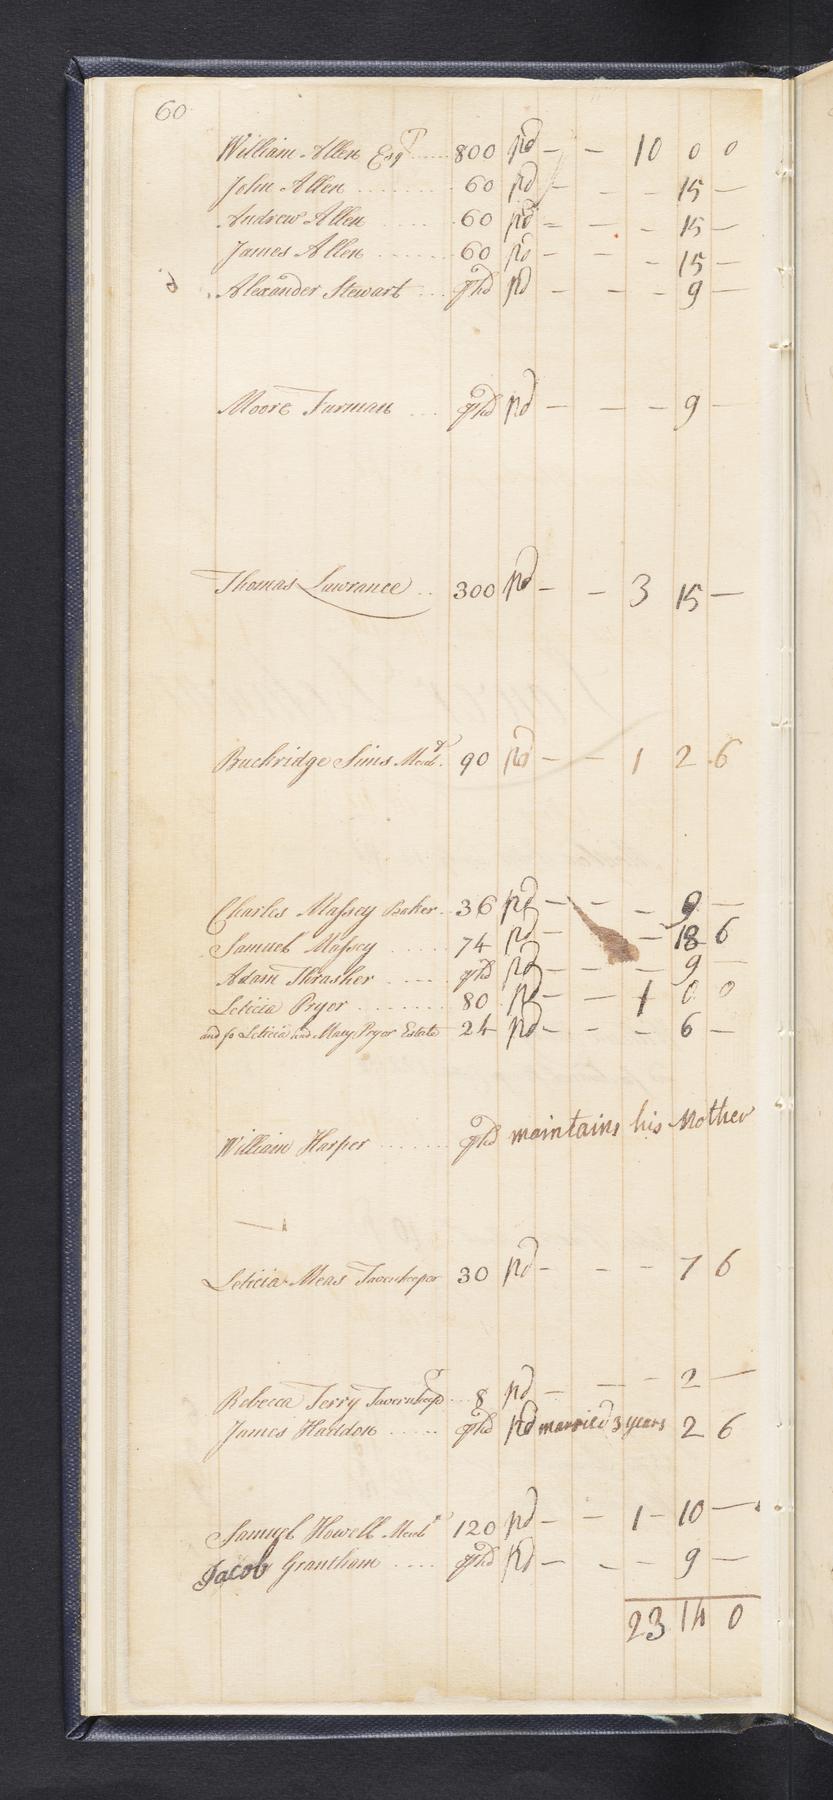 60
William Allen Esqr ..... 800 pd - - 10 0 0
John Allen ........ 60 pd - - - 15 -
Andrew Allen ..... 60 pd - - - 15 -
James Allen ....... 60 pd - - - 15 -
Alexander Stewart ... p hd pd - - - 9 -
Moore Furman ... p hd pd - - - 9 -
Thomas Lawrance .. 300 pd - - 3 15 -
Buckridge Sims Mercht. 90 pd - - 1 2 6
Charles Massey Baker .. 36 pd - - - 9 -
Samuel Massey ..... 74 pd - - 18 6
Adam Thrasher .... p hd pd - - - 9 -
Leticia Pryor ........ 80 pd - - 1 0 0
and fo Leticia and Mary Pryor Estate 24 pd - - - 6 -
William Harper ....... p hd maintains his Mother
Leticia Meas Tavernkeeper 30 pd - - - 7 6
Rebecca Terry Tavernkeepr .. 8 pd - - - 2 -
James Haddon ..... p hd pd married 3 years 2 6
Samuel Howell Mercht 120 pd - - 1 - 10 -
Jacob Grantham .... p hd pd - - - 9 -
23 14 0